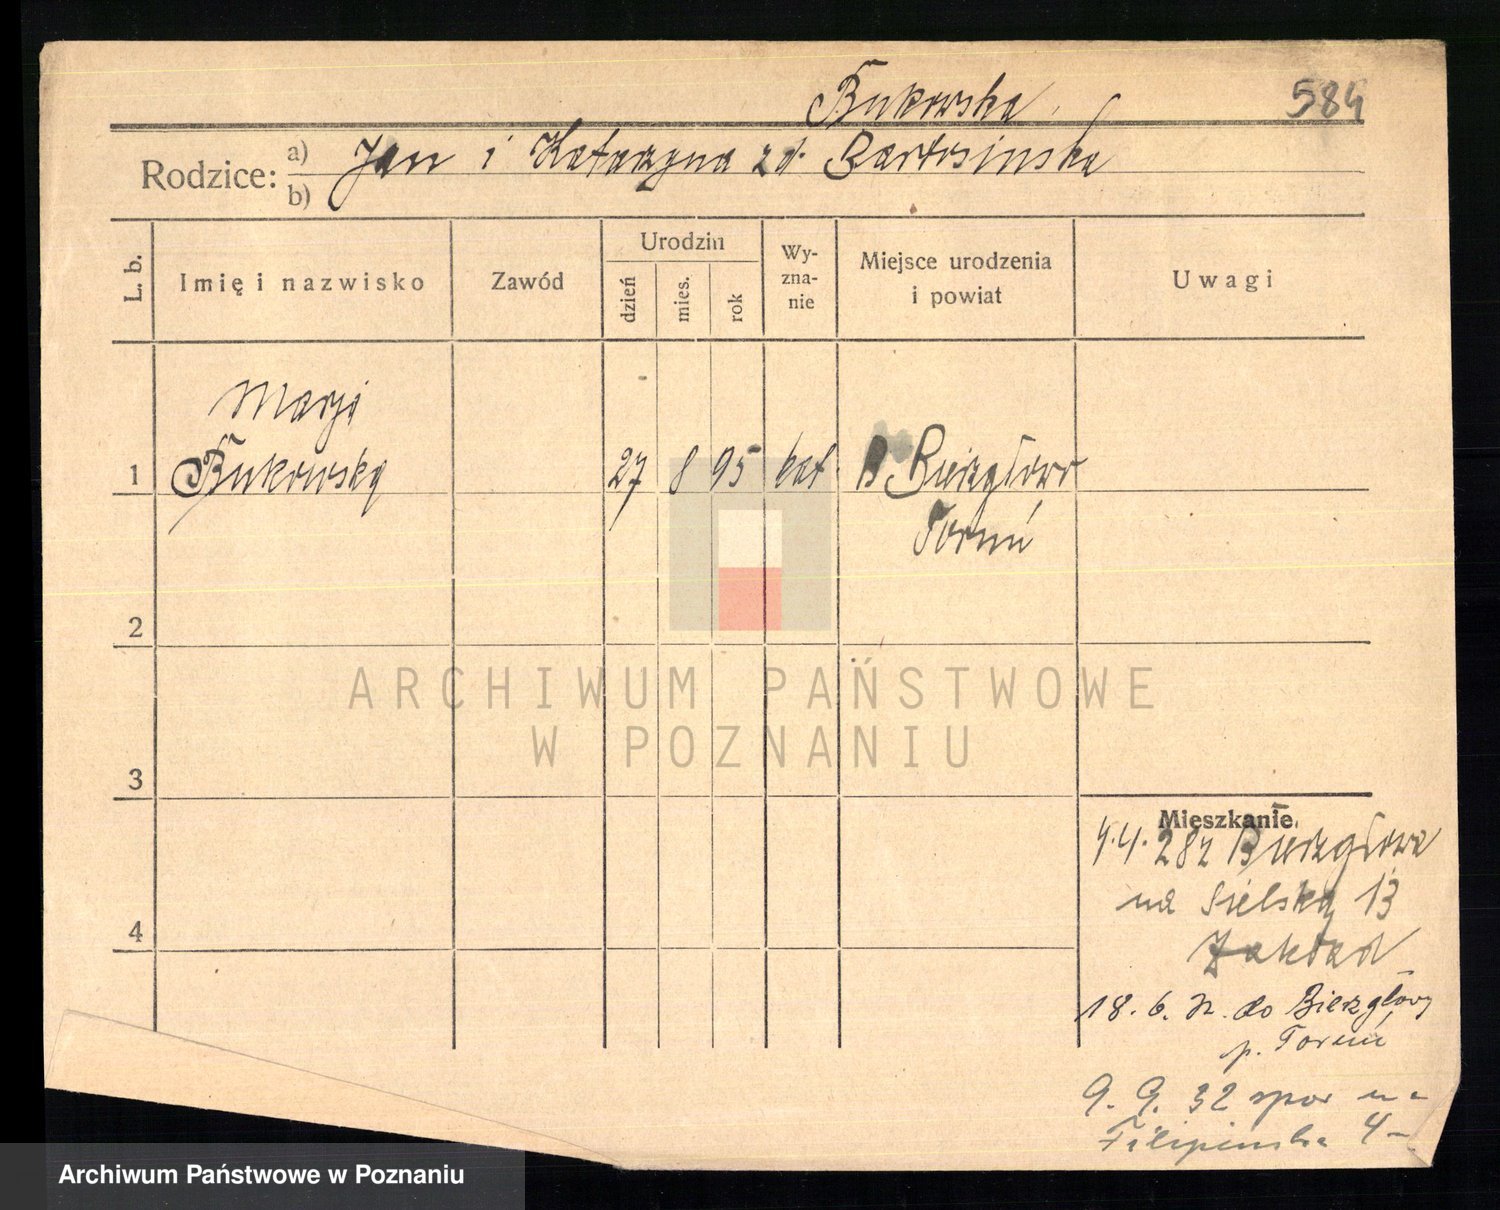 Bukowska
584
Rodzice: a) Jan i Katarzyna zd.
b)
L. b.
Imię i nazwisko
Zawód
Urodzin
dzień
mies.
rok
Wy-
zna-
nie
Miejsce urodzenia
i powiat
Uwagi
Marja
1 Bukowska 27 8 95 kat.
Toruń
2
3
4
Mieszkanie
na Sielską 13
Zakład
18. 6. do Bierzgłowy
p. Toruń
9. 9. 32 spow na
Filipińska 4-
ARCHIWUM PAŃSTWOWE
W POZNANIU
Archiwum Państwowe w Poznaniu